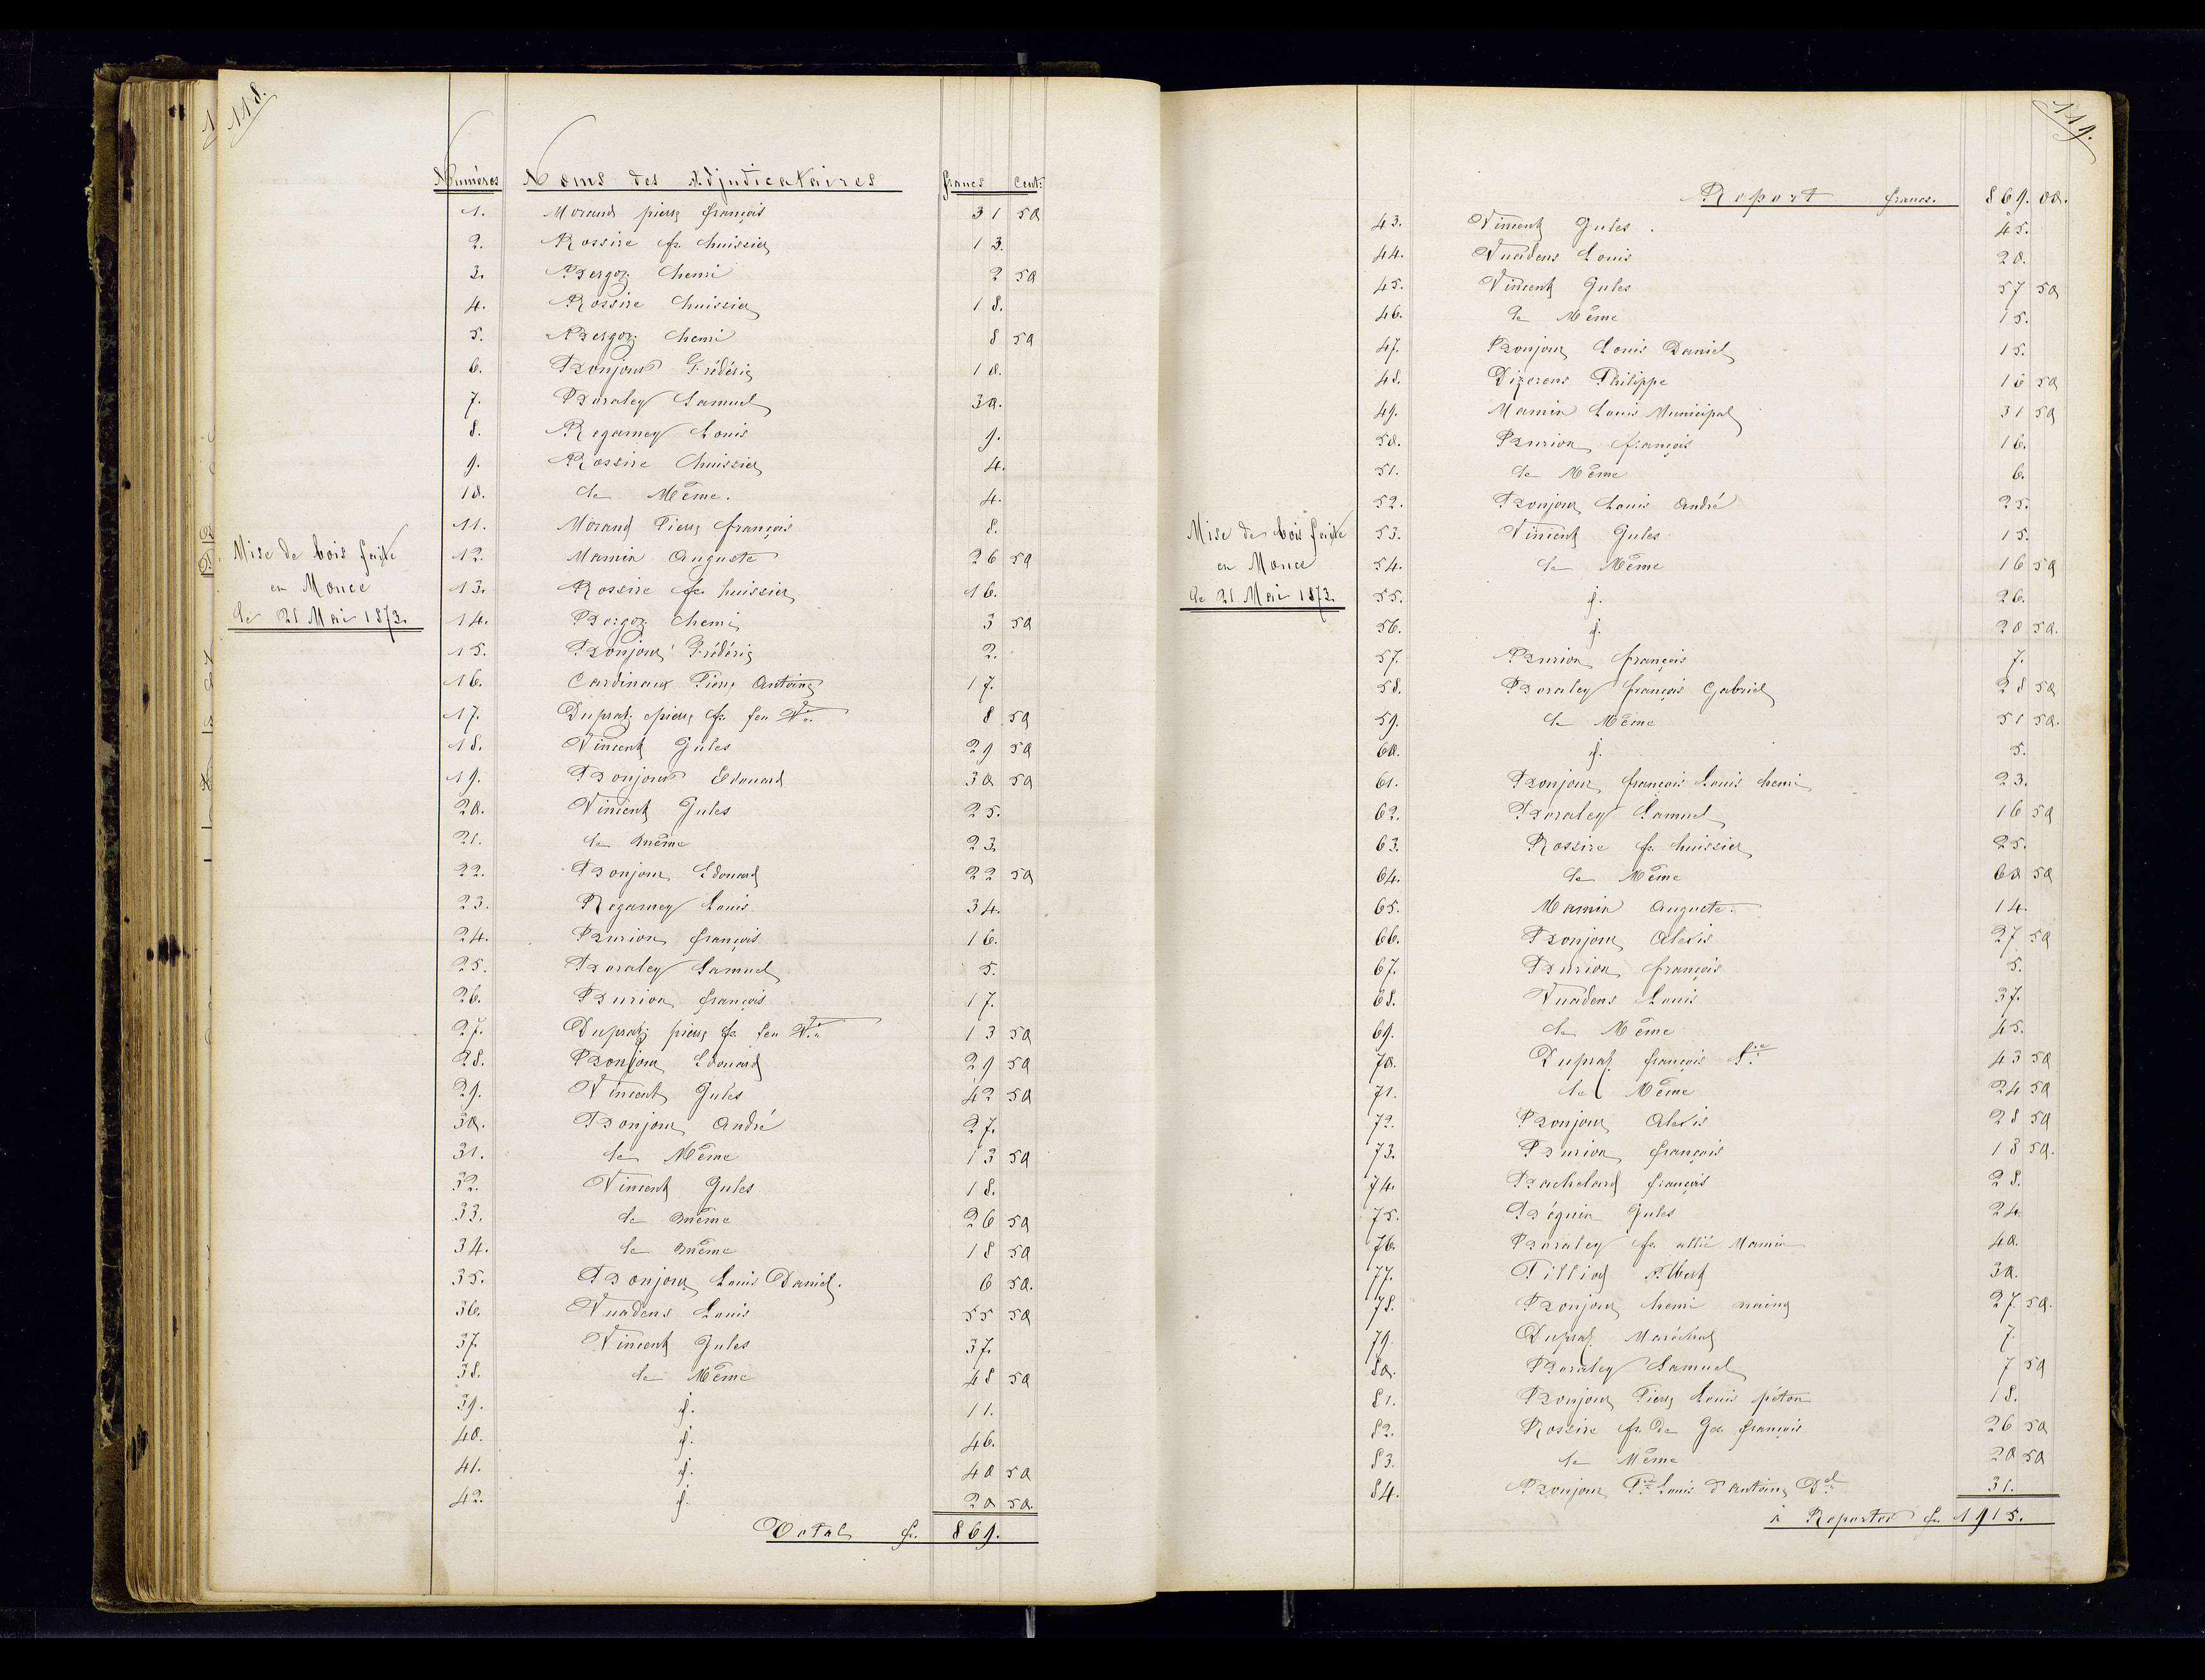 118.
Numéros Noms des Adjudicataires francs Cent:
Mise de bois faite
en Monce
le 21 Mai 1873.
1. Morand pierre françois 31 50
2. Rossire fs. huissier 13.
3. Bergoz henri 2 50
4. Rossire huissier 18.
5. Bergoz henri 8 50
6. Bonjour Frédéric 10.
7. Boraley Samuel 30.
8. Regamey Louis 9.
9. Rossire huissier 4.
10. Le Même. 4.
11. Morand Pierre françois 8.
12. Mamin Auguste 26 50
13. Rossire fs. huissier 16.
14. Bergoz henri 3 50
15. Bonjour Frédéric 2.
16. Cardinaux Pierre Antoine 17.
17. Dupraz pierre fs. feu 8 50
18. Vincent Jules 29 50
19. Bonjour Edouard 30 50
20. Vincent Jules 25.
21. le même 23.
22. Bonjour Edouard 22 50
23. Regamey Louis 34.
24. Burion françois 16.
25. Boraley Samuel 5.
26. Burion françois 17.
27. Dupraz pierre fs. feu 13 50
28. Bonjour Edouard 29 50
29. Vincent Jules 42 50
30. Bonjour André 27.
31. le Même 13 50
32. Vincent Jules 18.
33. le même 26 50
34. le même 18 50
35. Bonjour Louis Daniel. 6 50.
36. Vuadens Louis 55 50
37. Vincent Jules 37.
38. le Même 48 50
39. id. 11.
40. id. 46.
41. id. 40 50
42. id. 20 50.
Total fr. 869.
119.
Report francs. 869. 00.
Mise de bois faite
en Monce
le 21 Mai 1873.
43. Vincent Jules. 45.
44. Vuadens Louis 20.
45. Vincent Jules 57 50
46. le Même 15.
47. Bonjour Louis Daniel 15.
48. Dizerens Philippe 16 50
49. Mamin Louis Municipal 31 50
50. Burion françois 16.
51. le Même 6.
52. Bonjour Louis André 25.
53. Vincent Jules 15.
54. le Même 16 50
55. id. 26.
56. id. 20 50.
57. Burion françois 7.
58. Boraley françois Gabriel 28 50
59. le Même 51 50.
60. id. 5.
61. Bonjour françois Louis henri 23.
62. Boraley Samuel 16 50
63. Rossire fs. huissier 25.
64. le Même 60 50
65. Mamin Auguste. 14.
66. Bonjour Alexis 27 50
67. Burion françois 5.
68. Vuadens Louis 37.
69. le Même 45.
70. Dupraz françois 43 50
71. le Même 24 50
72. Bonjour Alexis 28 50
73. Burion françois 18 50.
74. Bachelard françois 28.
75. Béguin Jules 24.
76. Boraley fs. allié Mamin 40.
77. Tilliod Albert 30.
78. Bonjour henri 27. 50.
79. Dupraz Maréchal 7.
80. Boraley Samuel 7 50
81. Bonjour Pierre Louis péton 18.
82. Rossire fs. De Ge. françois 26 50
83. le Même 20 50
84. Bonjour Pre Louis d'antoine Del 31.
à Reporter fr. 1915.